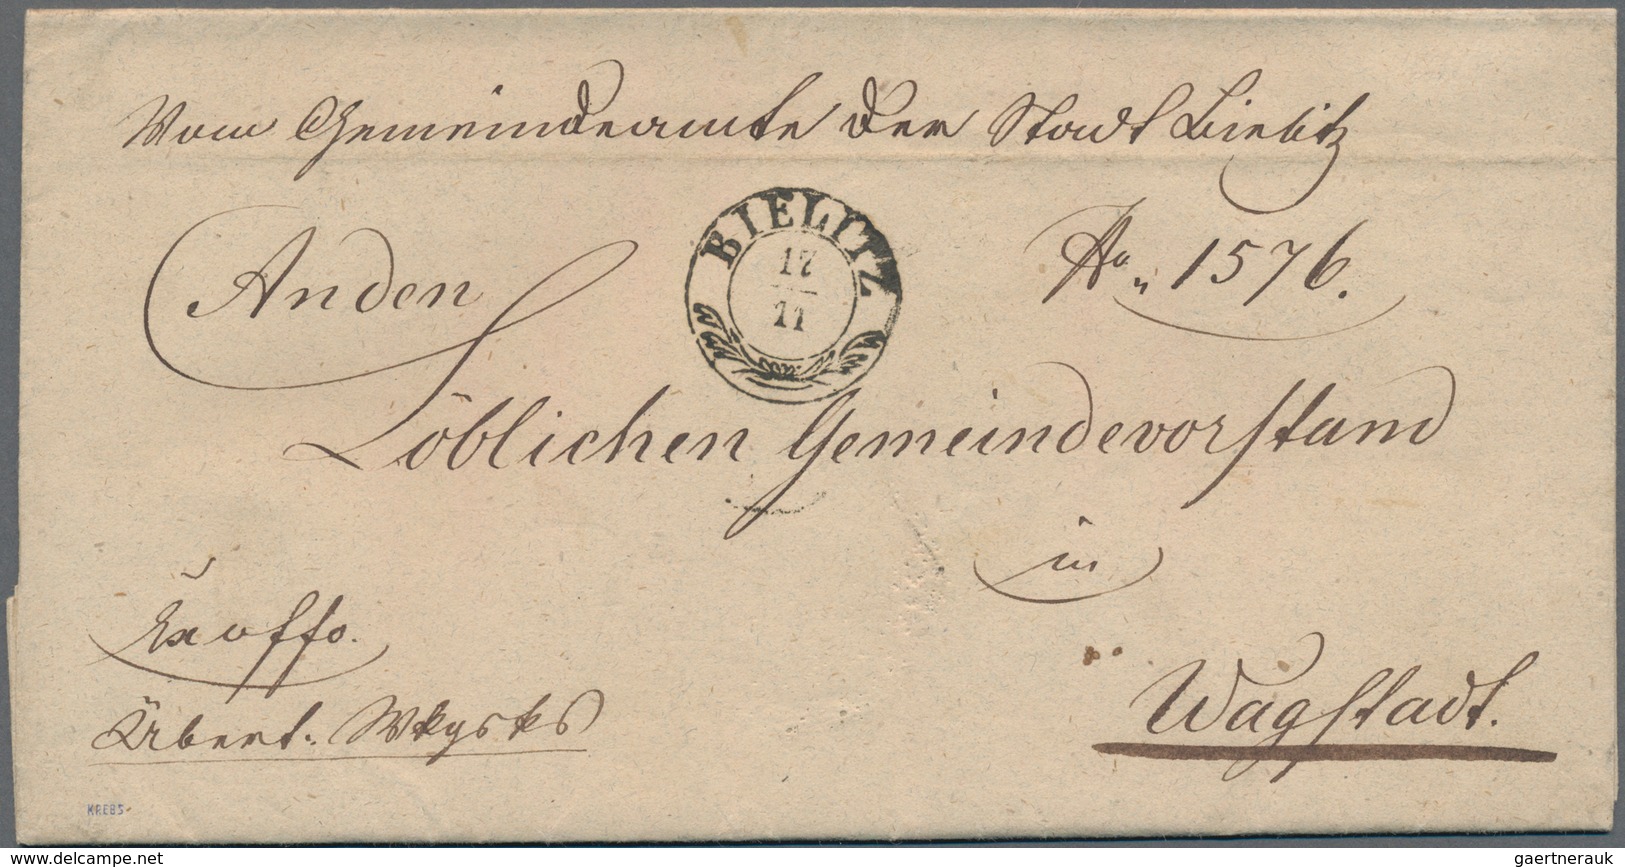 Vom Gemeindeamte der Stadt Bielitz
BIELITZ
17
11
An den
No 1576.
Löblichen Gemeindevorstand
in
Wagstadt.
KREBS
www.delcampe.net
gaertnerauk